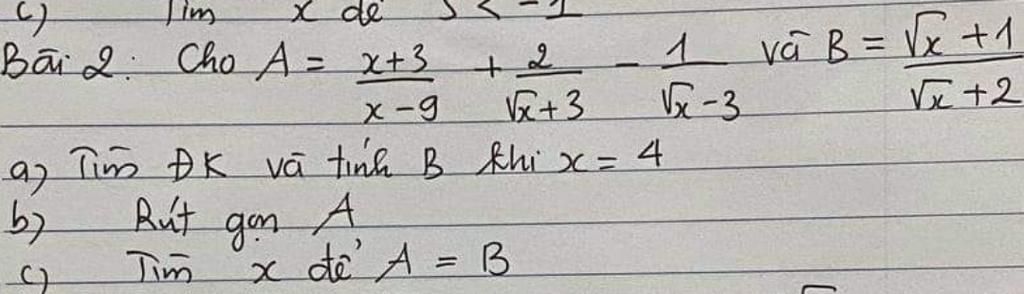 c) Tìm x để
Bài 2: Cho A = \frac{x+3}{x-9} + \frac{2}{\sqrt{x}+3} - \frac{1}{\sqrt{x}-3} và B = \frac{\sqrt{x}+1}{\sqrt{x}+2}
a) Tìm ĐK và tính B khi x = 4
b) Rút gọn A
c) Tìm x để A = B